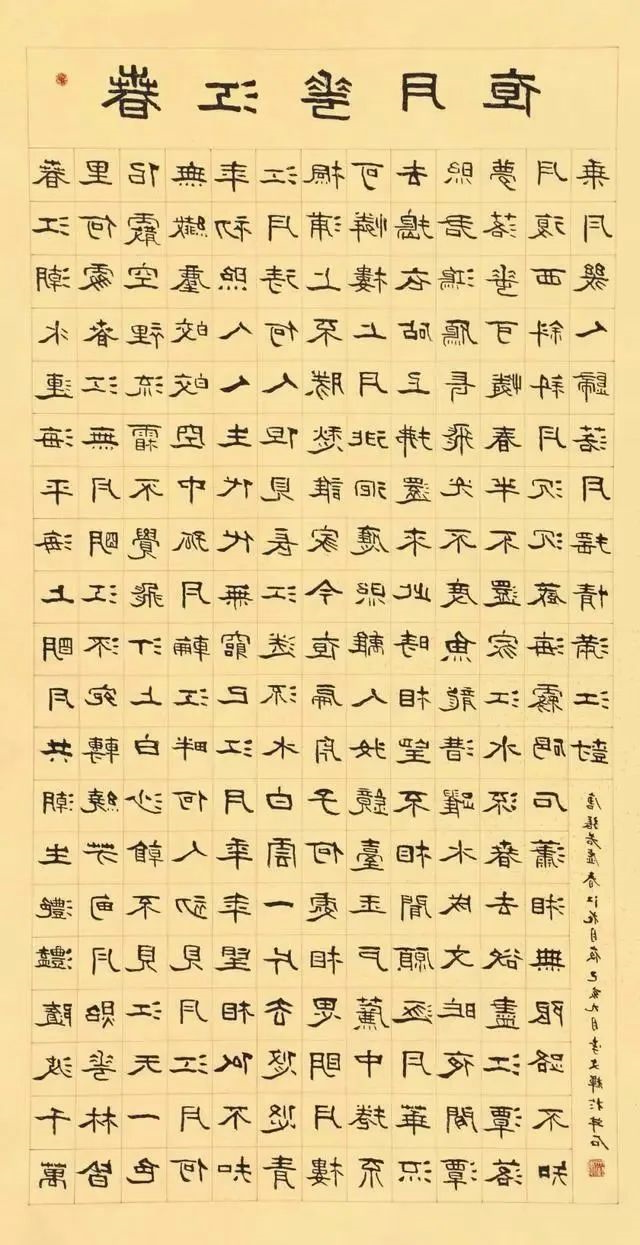 春江花月夜
春江潮水連海平海上明月共潮生灔灔隨波千萬
里何處春江無月明江流宛轉繞芳甸月照花林皆
佀霰空裡流霜不覺飛汀上白沙看不見江天一色
無纖塵皎皎空中孤月輪江畔何人初見月江月何
年初照人人生代代無窮已江月年年望相似不知
江月待何人但見長江送流水白雲一片去悠悠青
楓浦上不勝愁誰家今夜扁舟子何處相思明月樓
可憐樓上月徘徊應照離人妝鏡臺玉戶簾中捲不
去搗衣砧上拂還來此時相望不相聞願逐月華流
照君鴻雁長飛光不度魚龍潛躍水成文昨夜閑潭
夢落花可憐春半不還家江水流春去欲盡江潭落
月復西斜斜月沉沉藏海霧碣石瀟湘無限路不知
乘月幾人歸落月搖情滿江樹
唐張若虛春江花月夜己亥九月李文輝於坪石